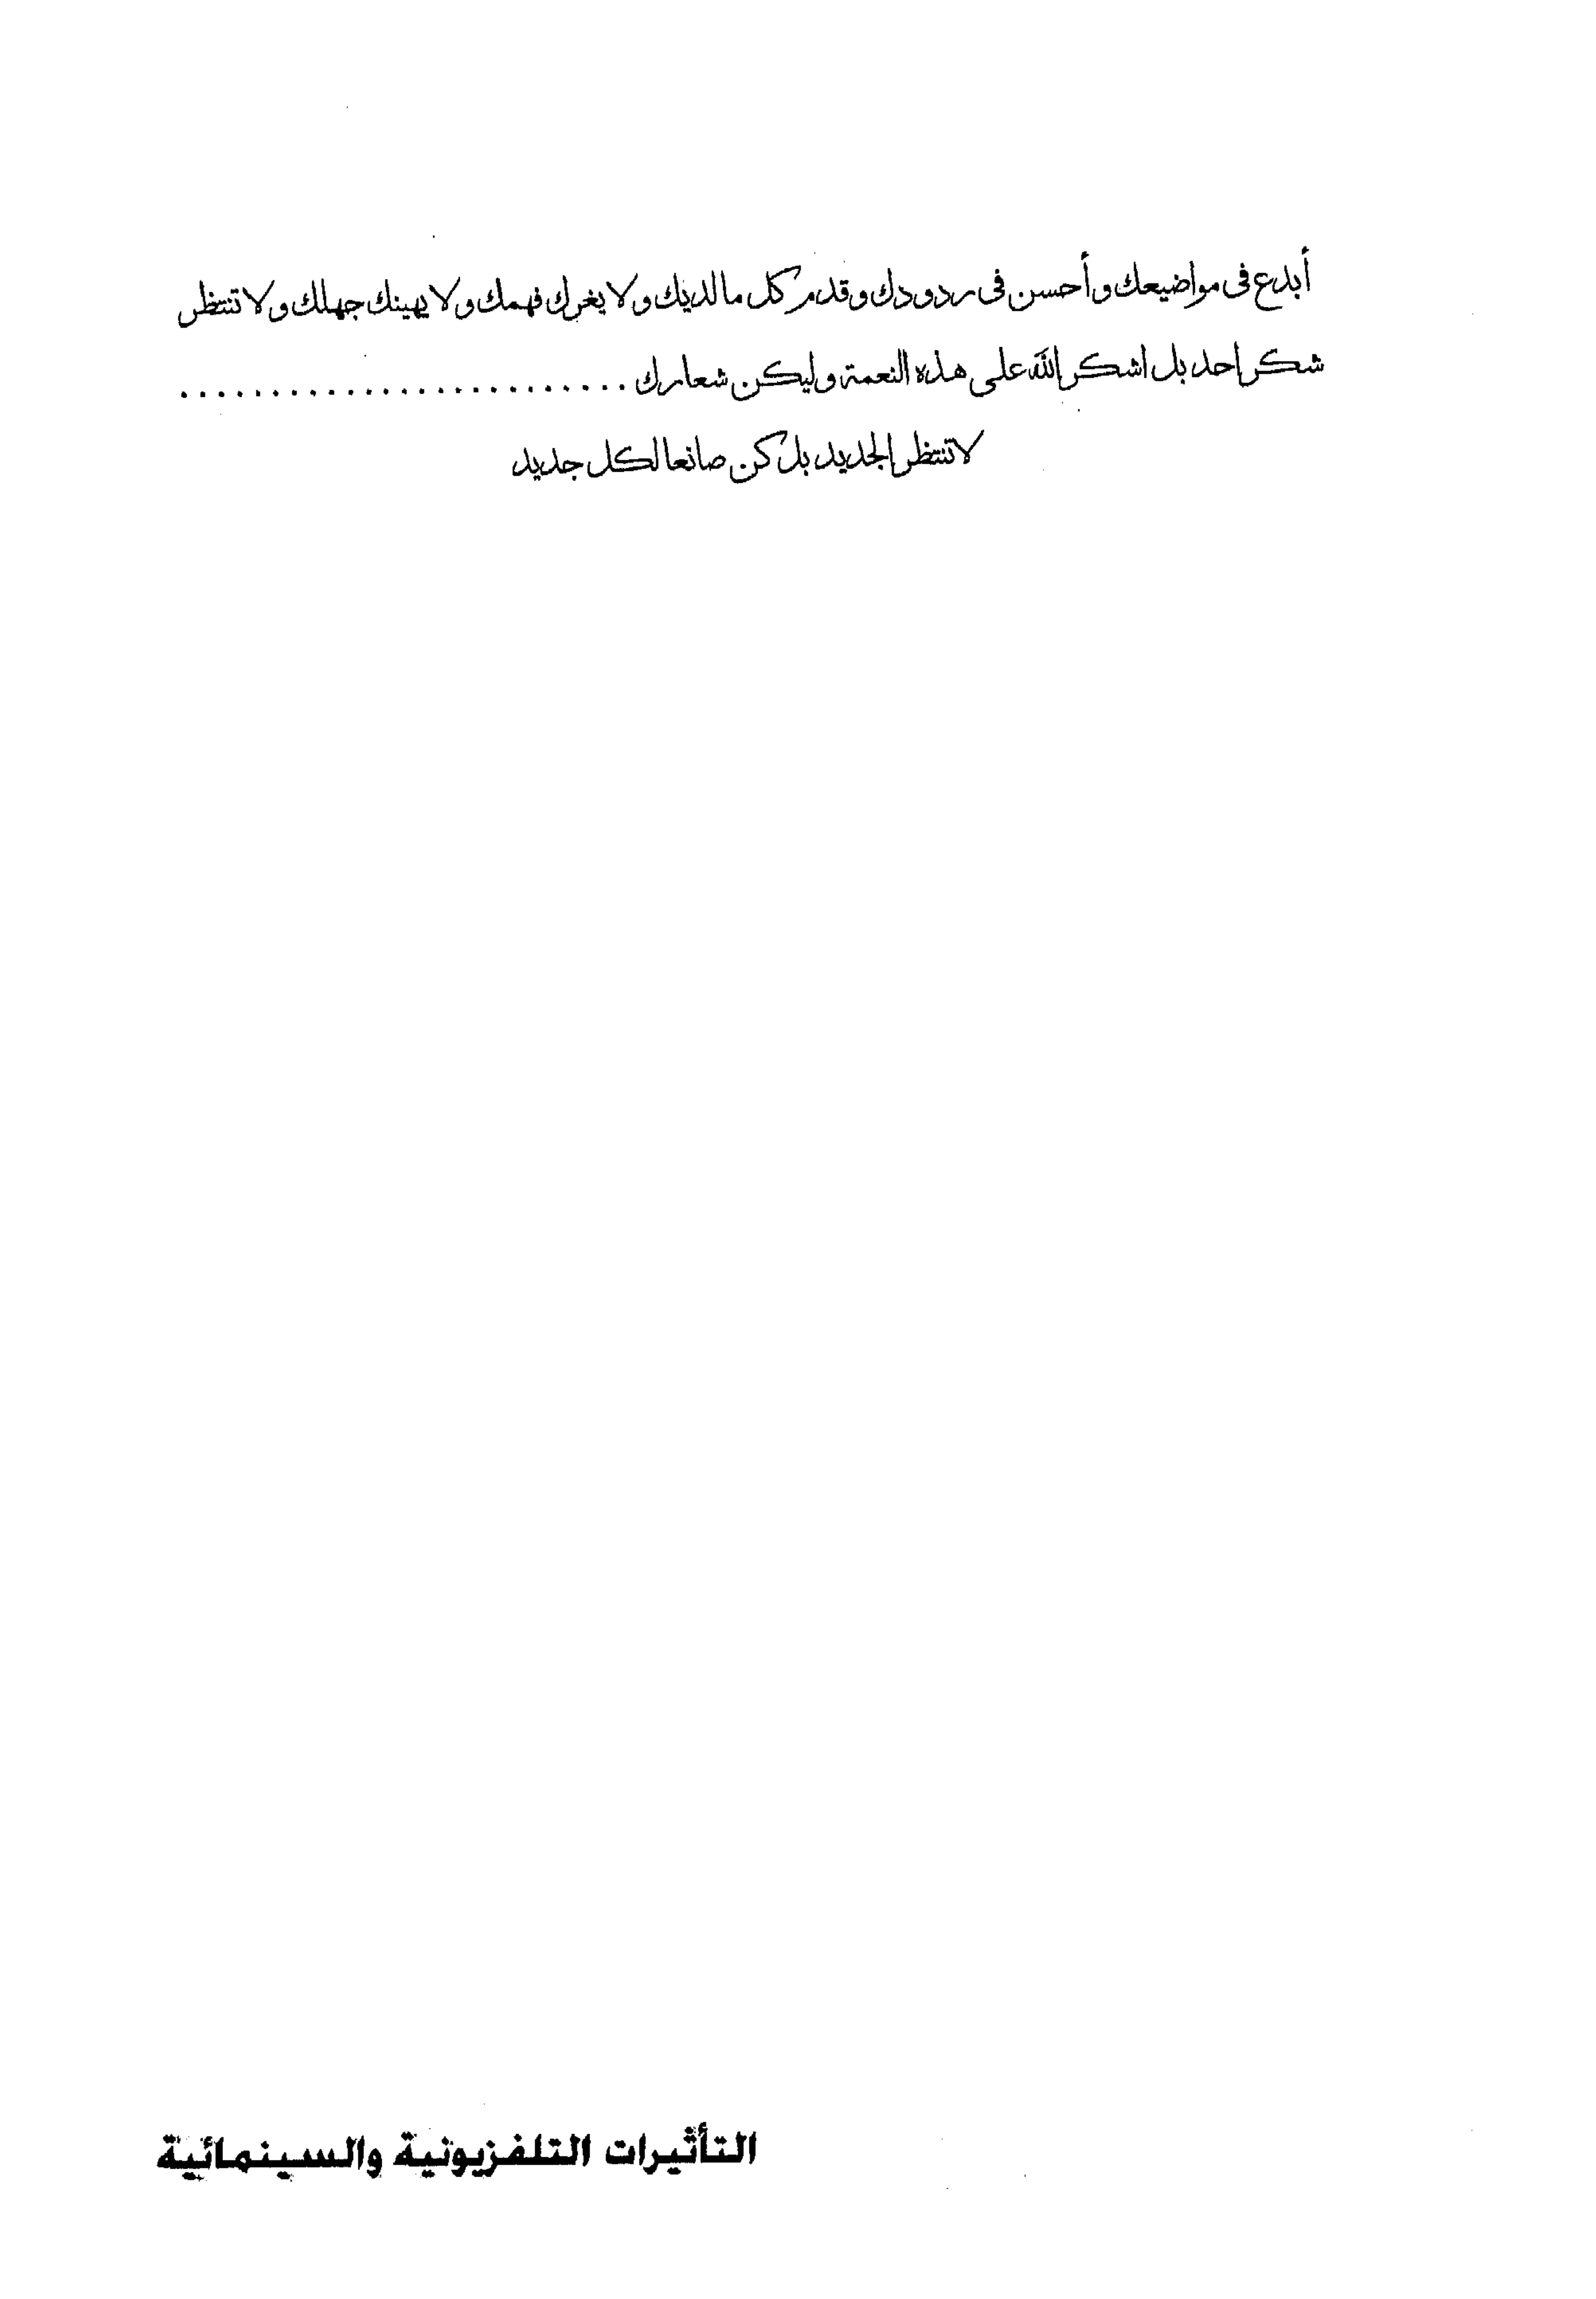 أبدع فى مواضيعك وأحسن فى ردودك وقدم كل مالديك ولا يغرك فهمك ولا يهينك جهلك ولا تنتظر
شكر احد بل اشكر الله على هذه النعمة وليكن شعارك . . . . . . . . . . . . . . . . . . . . . . . . .
لا تنتظر الجديد بل كن صانعا لكل جديد
التأثيرات التلفزيونية والسينمائية